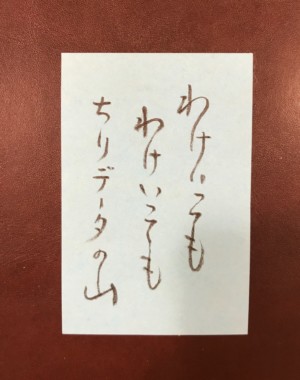 わけいっても
わけいっても
ちりデータの山